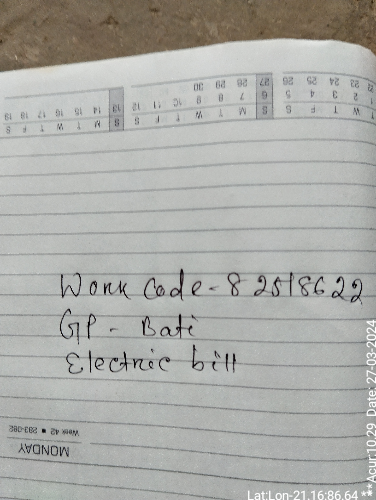 Work Code - 82518622
GP - Bati
Electric bill
MONDAY
Week 42 ■ 283-082
Lat:Lon-21.16:86.64
***Acur:10.29 Date: 27-03-2024